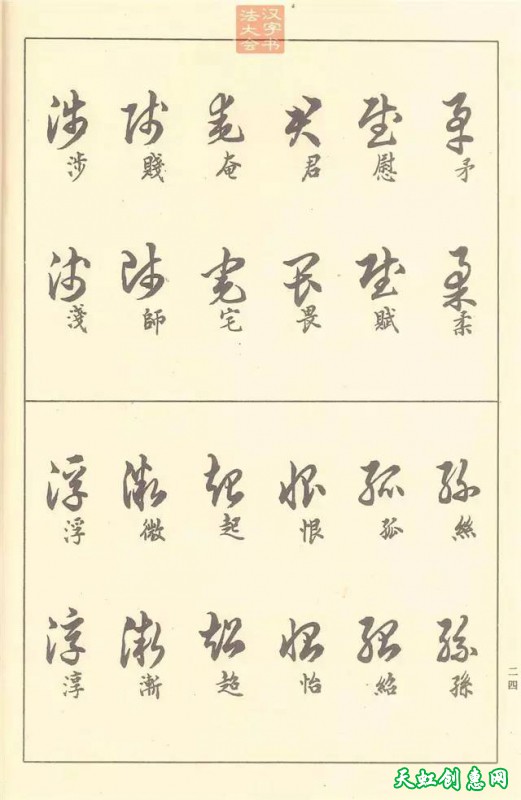 汉字书
法大会
矛
柔
慰
賦
君
畏
奄
宅
賤
師
涉
淺
絲
孫
孤
紹
恨
怡
起
超
微
漸
浮
淳
二四
天虹创惠网